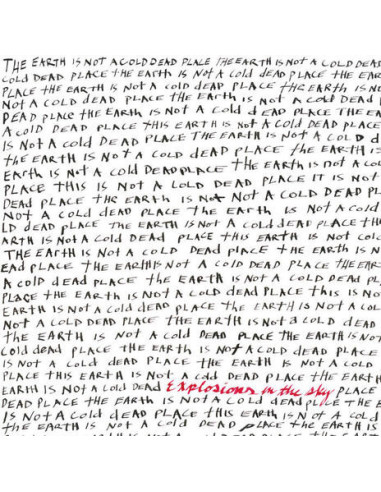 THE EARTH IS NOT A COLD DEAD PLACE THE EARTH IS NOT A COLD DEAD
COLD DEAD PLACE THE EARTH IS NOT A COLD DEAD PLACE THE EAR
PLACE THE EARTH IS NOT A COLD DEAD PLACE THE EARTH IS NO
NOT A COLD DEAD PLACE THE EARTH IS NOT A COLD DEAD
DEAD PLACE THE EARTH IS NOT A COLD DEAD PLACE THE EA
A COLD DEAD PLACE THIS EARTH IS NOT A COLD DEAD PLACE
IS NOT A COLD DEAD PLACE THE EARTH IS NOT A COLD D
THE EARTH IS NOT A COLD DEAD PLACE THE EARTH I
EARTH IS NOT A COLD DEAD PLACE THE EARTH IS NOT A COLD
PLACE THIS IS NOT A COLD DEAD PLACE IT IS NOT
DEAD PLACE THE EARTH IS NOT A COLD DEAD PL
NOT A COLD DEAD PLACE THE EARTH IS NOT A COLD
LD DEAD PLACE THE EARTH IS NOT A COLD DEAD PLACE TH
ARTH IS NOT A COLD DEAD PLACE THIS EARTH IS NOT COLD
THE EARTH IS NOT A COLD DEAD PLACE THE EARTH IS N
EAD PLACE THE EARTH IS NOT A COLD DEAD PLACE THE EAR
A COLD DEAD PLACE THE EARTH IS NOT A COLD DEAD PLA
PLACE THE EARTH IS NOT A COLD DEAD PLACE THIS IS NO
EARTH IS NOT A COLD DEAD PLACE THE EARTH IS NOT A COL
NOT A COLD DEAD PLACE THE EARTH IS NOT A COLD DEAD
THE EARTH IS NOT A COLD DEAD PLACE THE EARTH IS NOT
COLD DEAD PLACE THE EARTH IS NOT A COLD DEAD PLACE
IS NOT A COLD DEAD PLACE THE EARTH IS NOT A COLD
PLACE THIS EARTH IS NOT A COLD DEAD PLACE THE EARTH
EARTH IS NOT A COLD DEAD Explosions in the sky PLACE
DEAD PLACE THE EARTH IS NOT A COLD DEAD PLACE THE E
IS NOT A COLD DEAD PLACE THIS EARTH IS NOT A COLD
THE EARTH IS NOT A COLD DEAD PLACE THE EARTH IS N
NOT A COLD DEAD PLACE THE EARTH IS NOT A COLD DEAD